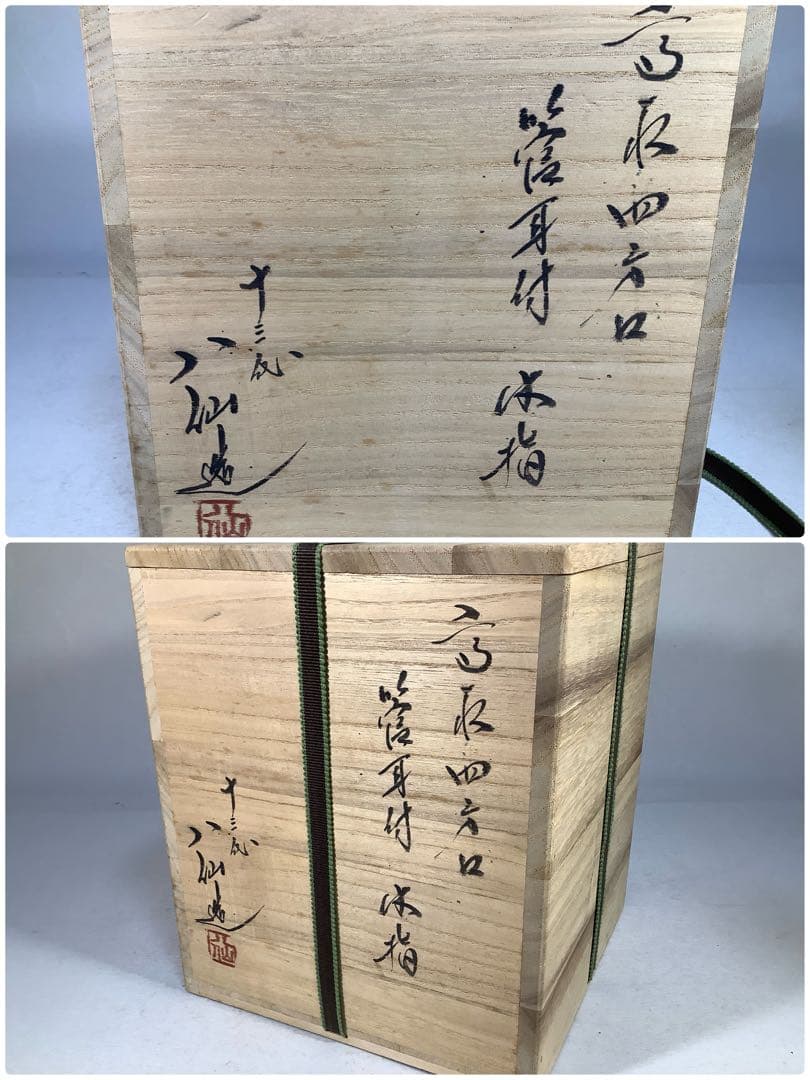 高取四方口
管耳付 水指
十三代
八仙造
高取四方口
管耳付 水指
十三代
八仙造